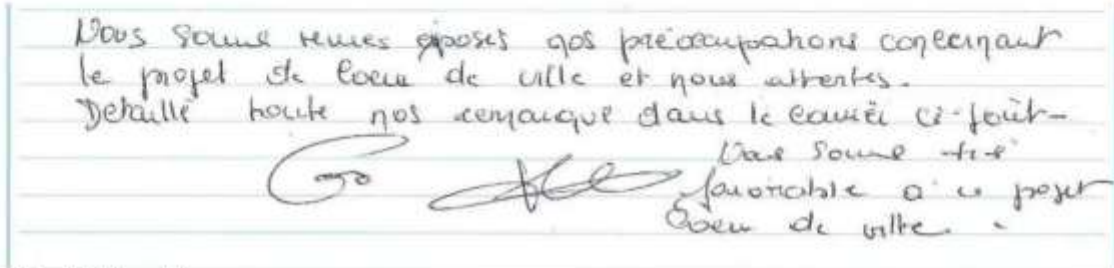 Nous somme venues exposés nos préoccupations concernant
le projet de Coeur de ville et nous attentes.
Detaillé toute nos remarque dans le courrier ci-joint-
Nous somme très
favorable a ce projet
Coeur de ville.